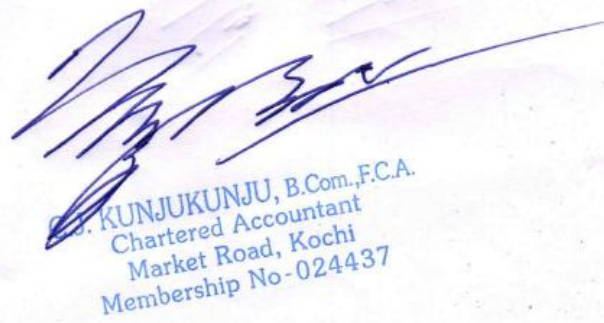 KUNJUKUNJU, B.Com.,F.C.A.
Chartered Accountant
Market Road, Kochi
Membership No-024437